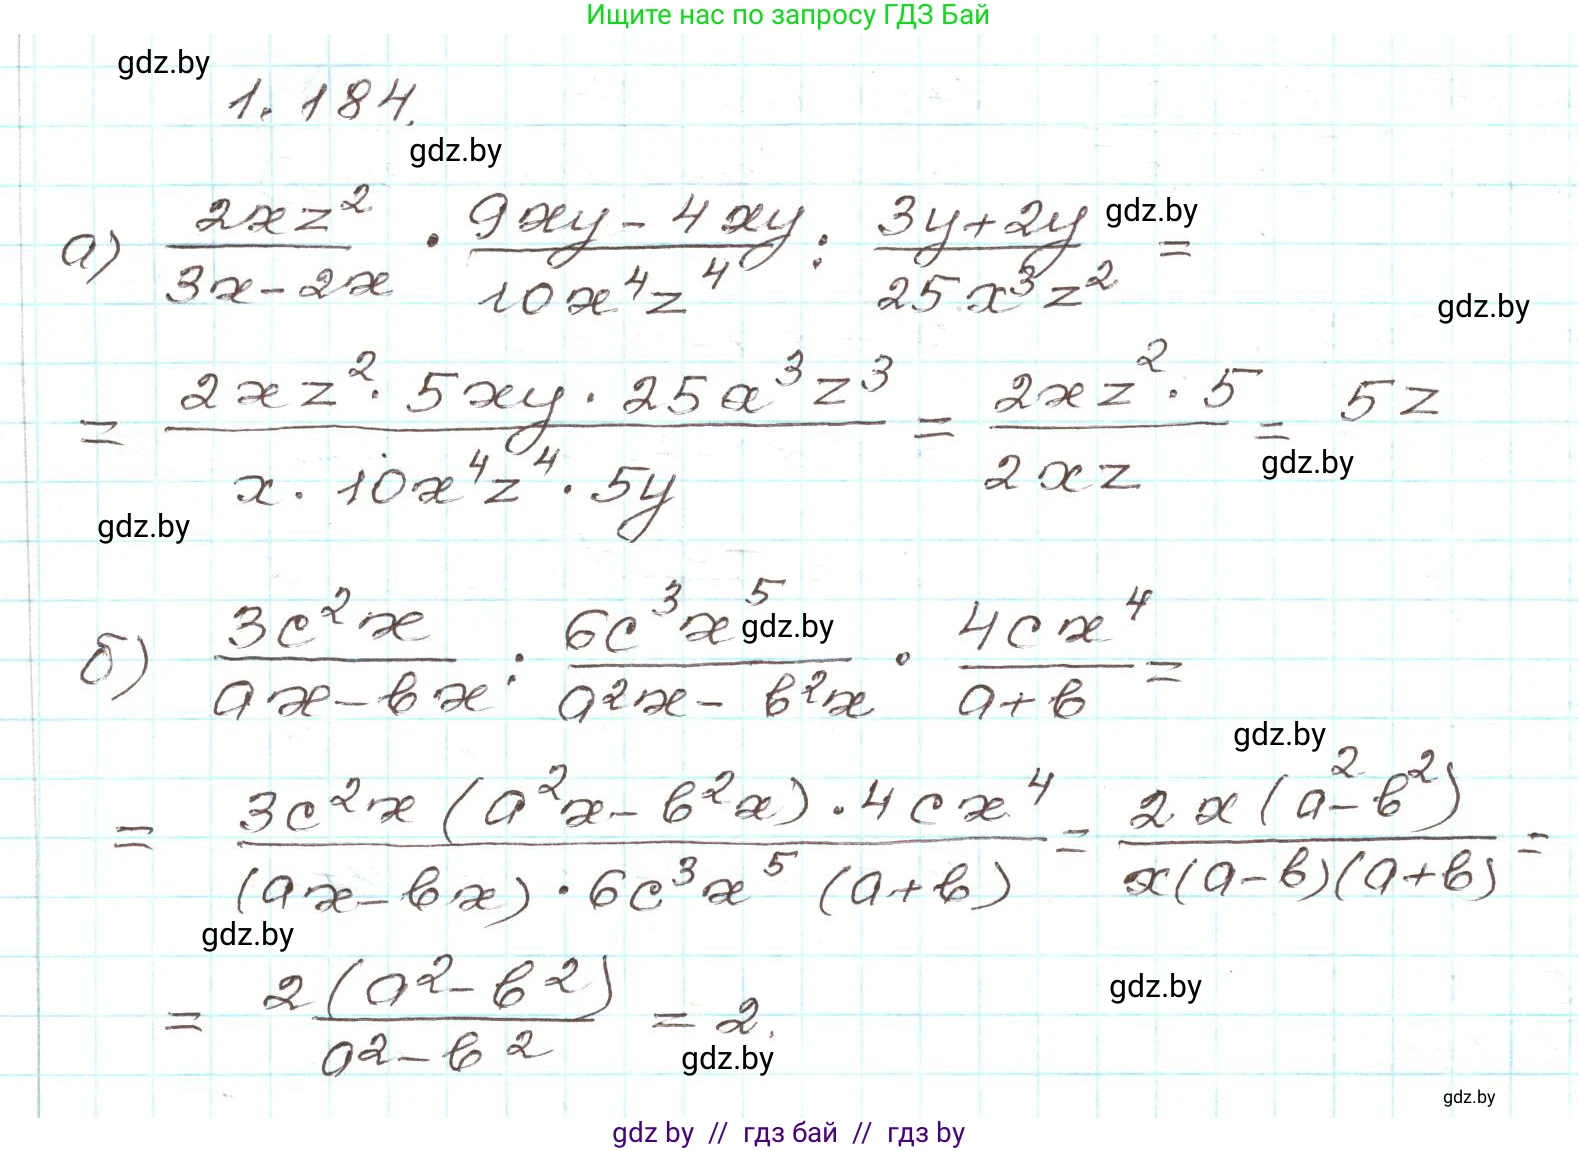 Ищите нас по запросу ГДЗ Бай
gdz.by
1.184.
gdz.by
а) 2xz²/(3x-2x) · (9xy-4xy)/(10x⁴z⁴) : (3y+2y)/(25x³z²) =
gdz.by
gdz.by
= (2xz² · 5xy · 25x³z³)/(x · 10x⁴z⁴ · 5y) = (2xz² · 5)/(2xz) = 5z
gdz.by
gdz.by
б) 3c²x/(ax-bx) : 6c³x⁵/(a²x-b²x) · 4cx⁴/(a+b) =
gdz.by
gdz.by
= (3c²x(a²x-b²x) · 4cx⁴)/((ax-bx) · 6c³x⁵(a+b)) = (2x(a²-b²))/(x(a-b)(a+b)) =
gdz.by
= 2(a²-b²)/(a²-b²) = 2.
gdz.by
gdz.by
gdz.by
gdz by // гдз бай // гдз by